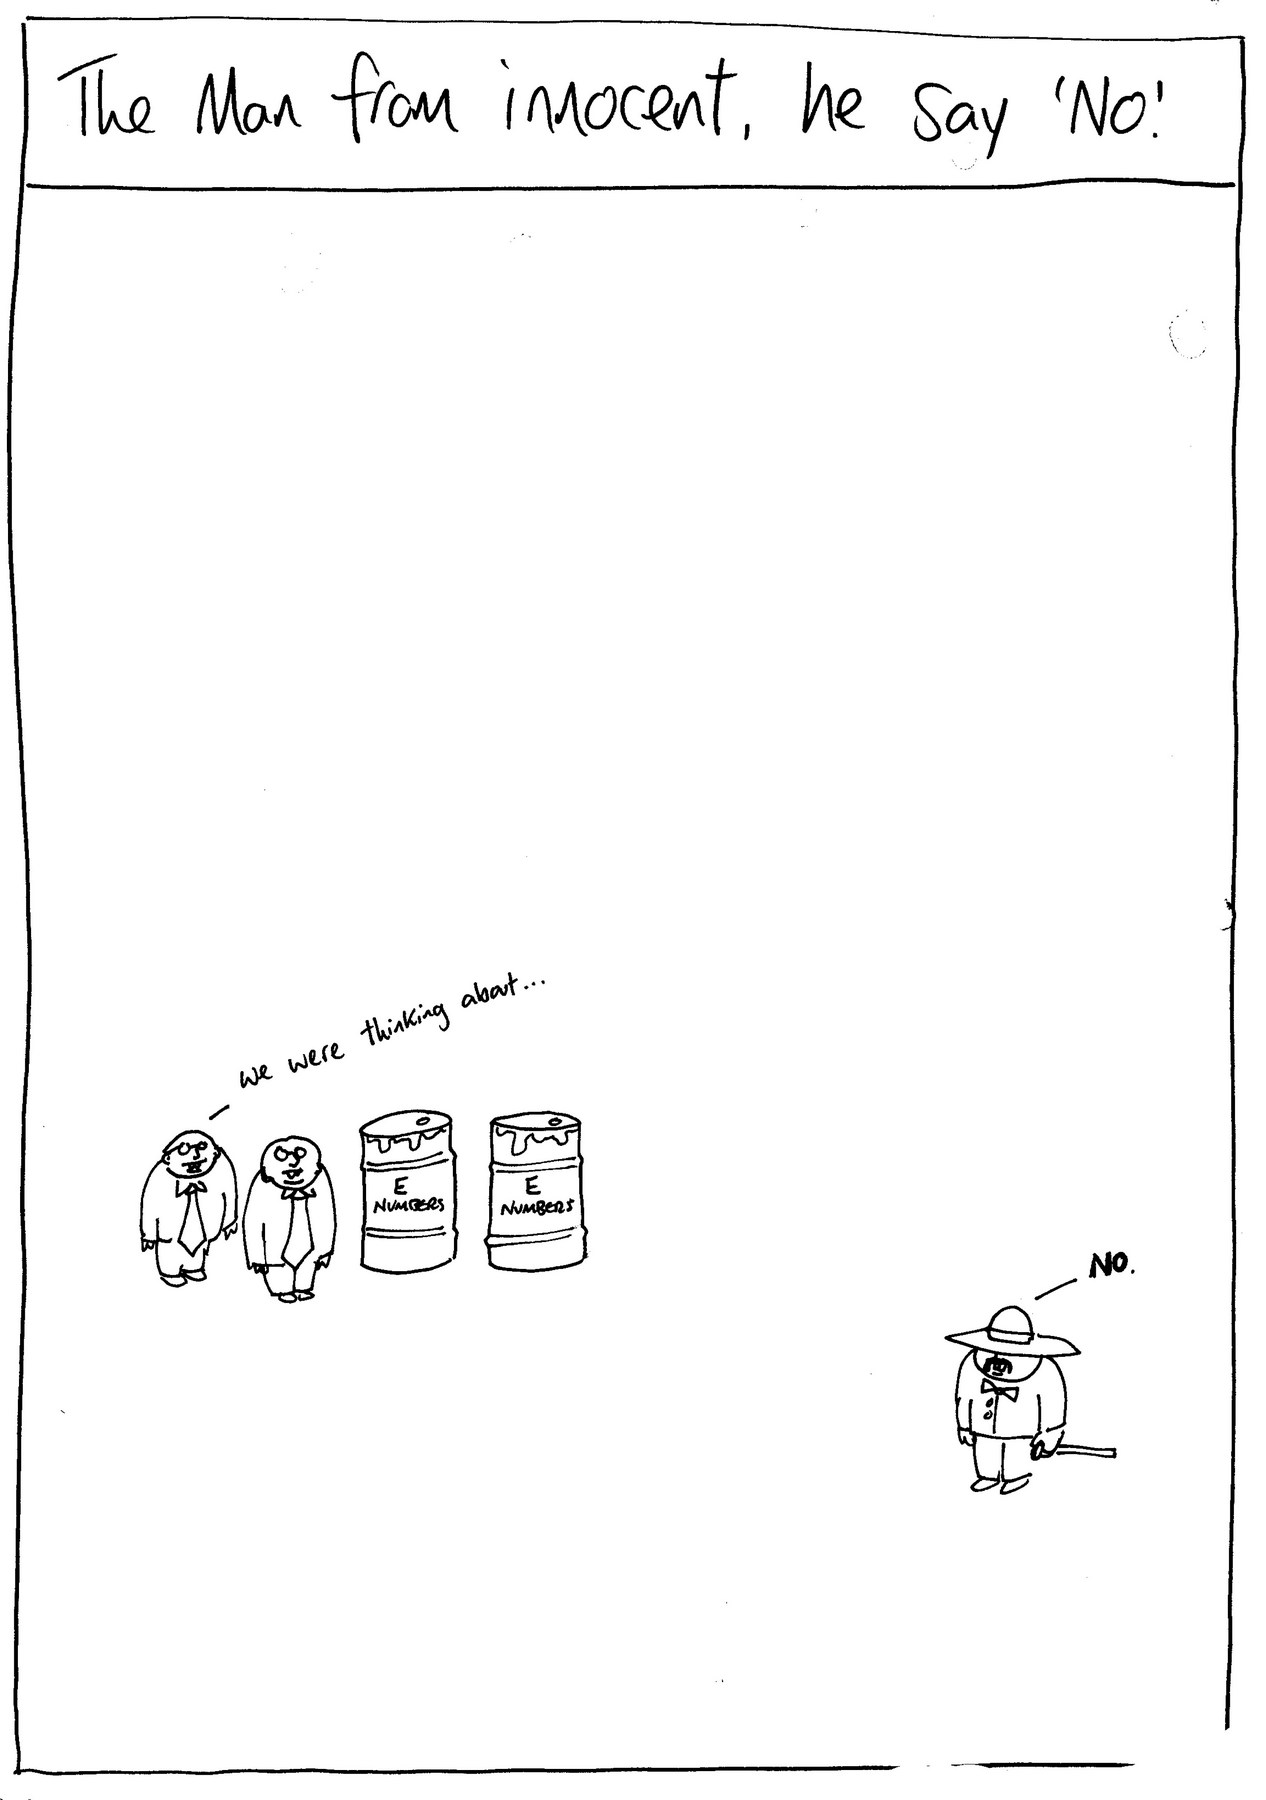 The Man from innocent, he say 'No!'
we were thinking about...
E
NUMBERS
E
NUMBERS
NO.